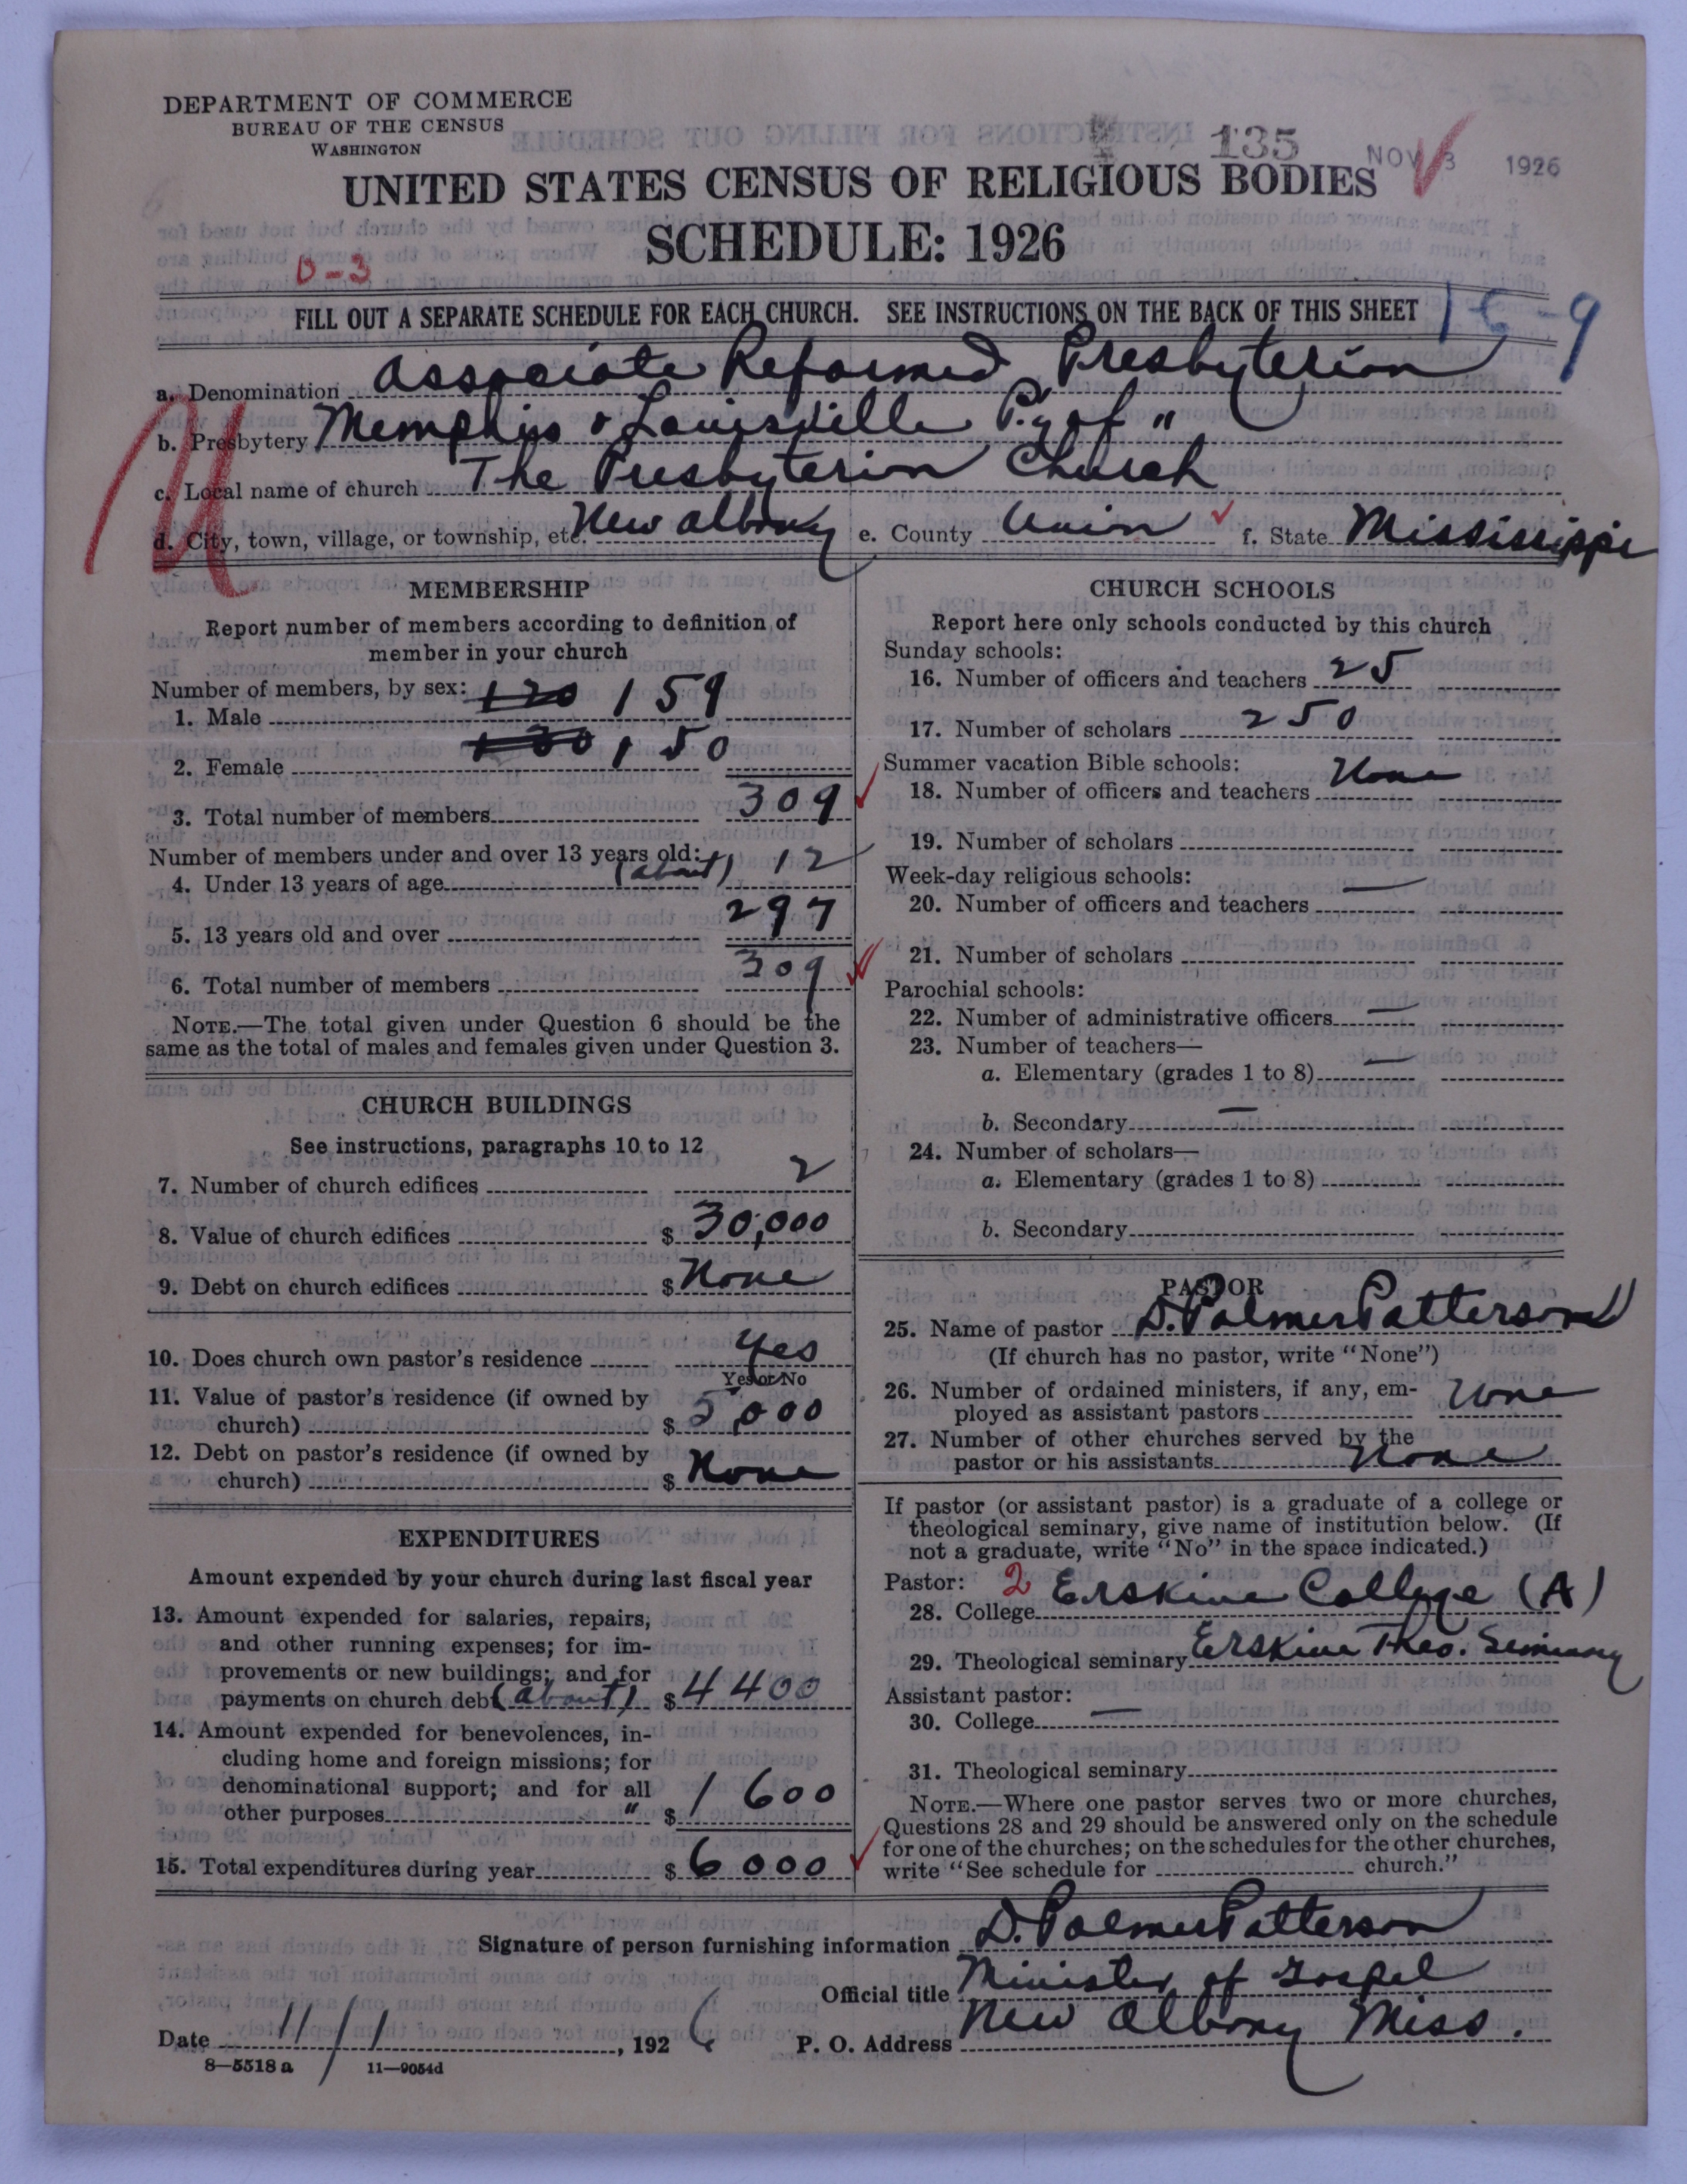 DEPARTMENT OF COMMERCE
BUREAU OF THE CENSUS
WASHINGTON
135
NOV 3 1926
UNITED STATES CENSUS OF RELIGIOUS BODIES
SCHEDULE: 1926
D-3
FILL OUT A SEPARATE SCHEDULE FOR EACH CHURCH. SEE INSTRUCTIONS ON THE BACK OF THIS SHEET
a. Denomination Associate Reformed Presbyterian
b. Presbytery Memphis & Louisville P.y of "
c. Local name of church The Presbyterian Church
d. City, town, village, or township, etc. New Albany e. County Union f. State Mississippi
MEMBERSHIP
Report number of members according to definition of
member in your church
Number of members, by sex:
1. Male 120 159
2. Female 130 150
3. Total number of members 309
Number of members under and over 13 years old:
4. Under 13 years of age (about) 12
5. 13 years old and over 297
6. Total number of members 309
NOTE.—The total given under Question 6 should be the
same as the total of males and females given under Question 3.
CHURCH BUILDINGS
See instructions, paragraphs 10 to 12
7. Number of church edifices 2
8. Value of church edifices $ 30,000
9. Debt on church edifices $ None
10. Does church own pastor's residence Yes
Yes or No
11. Value of pastor's residence (if owned by
church) $ 5,000
12. Debt on pastor's residence (if owned by
church) $ None
EXPENDITURES
Amount expended by your church during last fiscal year
13. Amount expended for salaries, repairs,
and other running expenses; for im-
provements or new buildings; and for
payments on church debt (about) $ 4400
14. Amount expended for benevolences, in-
cluding home and foreign missions; for
denominational support; and for all
other purposes " $ 1600
15. Total expenditures during year $ 6000
CHURCH SCHOOLS
Report here only schools conducted by this church
Sunday schools:
16. Number of officers and teachers 25
17. Number of scholars 250
Summer vacation Bible schools:
18. Number of officers and teachers None
19. Number of scholars
Week-day religious schools:
20. Number of officers and teachers —
21. Number of scholars
Parochial schools:
22. Number of administrative officers —
23. Number of teachers—
a. Elementary (grades 1 to 8) —
b. Secondary —
24. Number of scholars—
a. Elementary (grades 1 to 8)
b. Secondary
PASTOR
25. Name of pastor D. Palmer Patterson
(If church has no pastor, write "None")
26. Number of ordained ministers, if any, em-
ployed as assistant pastors None
27. Number of other churches served by the
pastor or his assistants None
If pastor (or assistant pastor) is a graduate of a college or
theological seminary, give name of institution below. (If
not a graduate, write "No" in the space indicated.)
Pastor: 2
28. College Erskine College (A)
29. Theological seminary Erskine Theo. Seminary
Assistant pastor:
30. College —
31. Theological seminary
NOTE.—Where one pastor serves two or more churches,
Questions 28 and 29 should be answered only on the schedule
for one of the churches; on the schedules for the other churches,
write "See schedule for church."
Signature of person furnishing information D. Palmer Patterson
Official title Minister of Gospel
Date 11/1, 1926 P. O. Address New Albany Miss.
8—5518 a 11—9054d